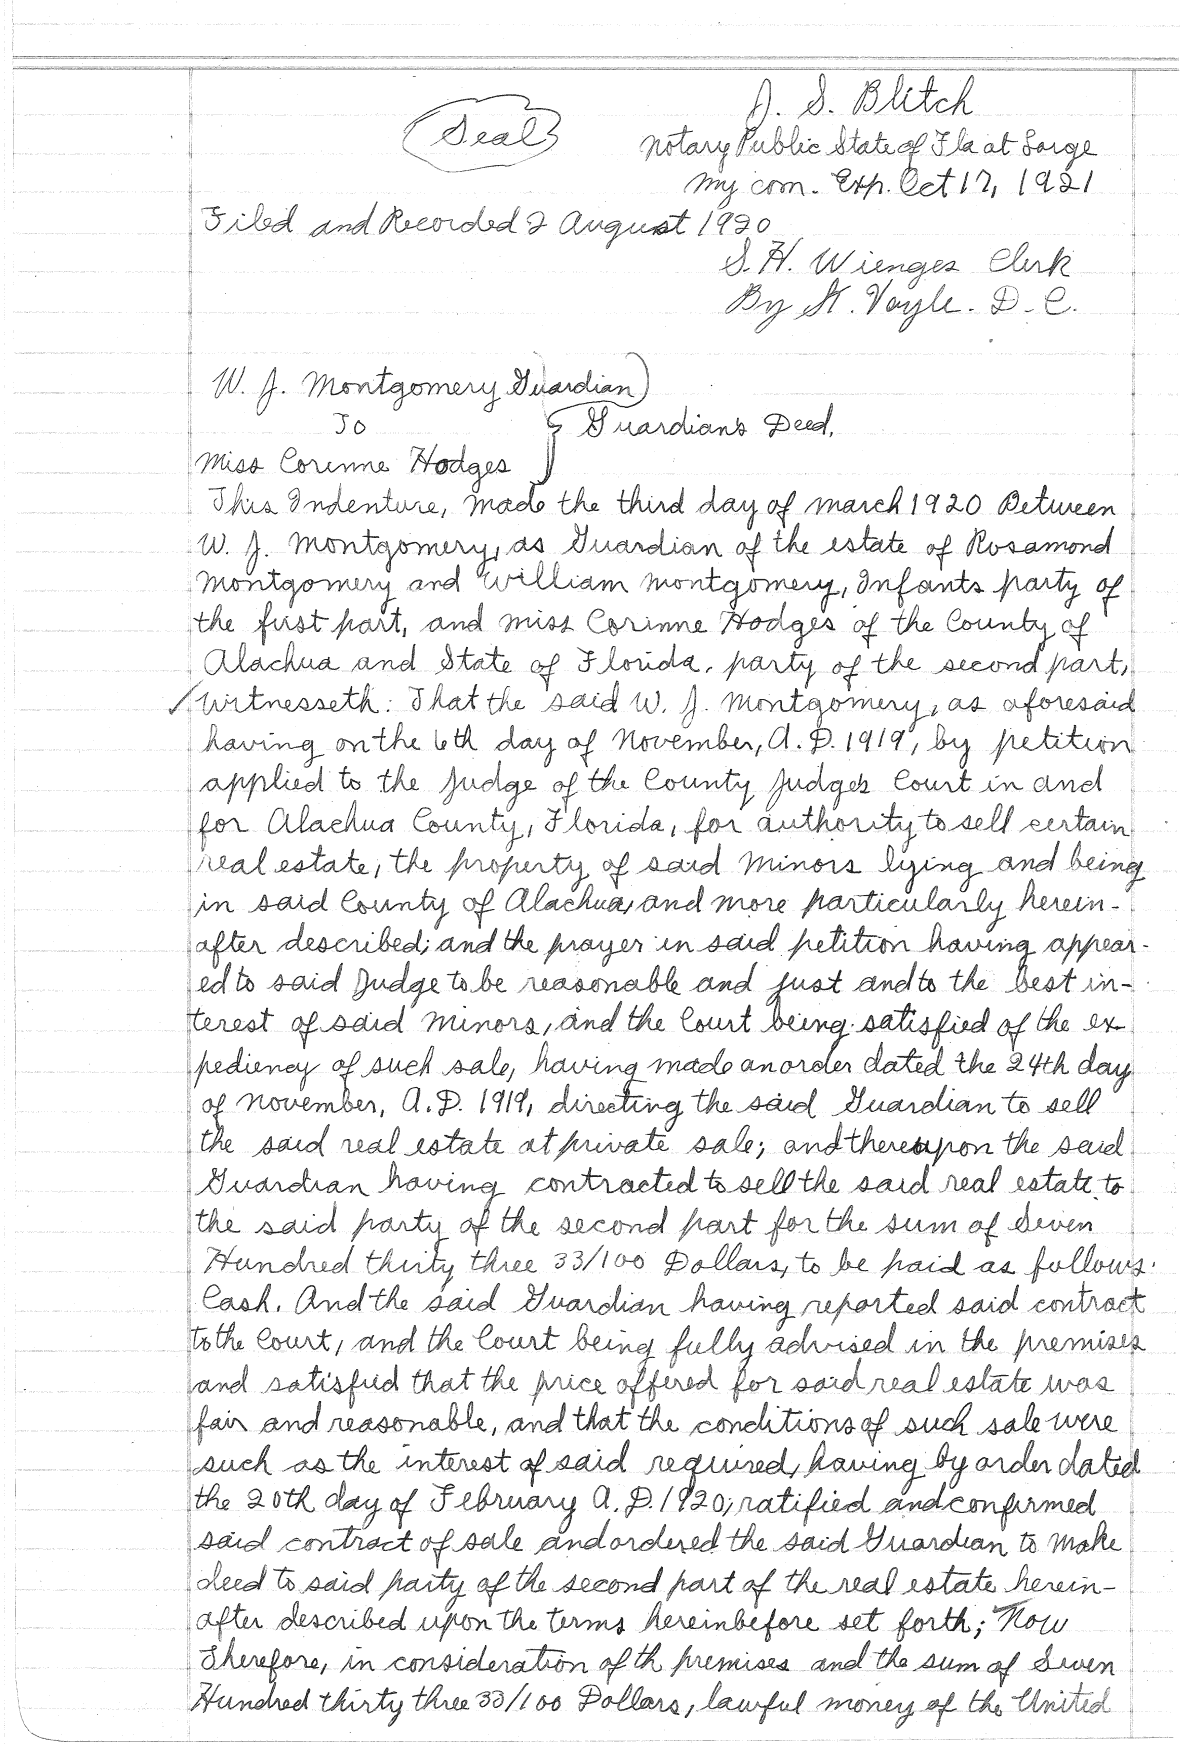 J. S. Blitch
(Seal)
Notary Public State of Fla at Large
My com. Exp. Oct 17, 1921
Filed and Recorded 2 August 1920
S. H. Wienges Clerk
By H. Voyle. D. C.
W. J. Montgomery Guardian
To
Guardian's Deed,
Miss Corinne Hodges
This Indenture, made the third day of March 1920 Between
W. J. Montgomery, as Guardian of the estate of Rosamond
Montgomery and William Montgomery, Infants party of
the first part, and Miss Corinne Hodges of the County of
Alachua and State of Florida, party of the second part,
Witnesseth: That the said W. J. Montgomery, as aforesaid
having on the 6th day of November, A.D. 1919, by petition
applied to the Judge of the County Judge's Court in and
for Alachua County, Florida, for authority to sell certain
real estate, the property of said Minors lying and being
in said County of Alachua, and more particularly herein-
after described; and the prayer in said petition having appear-
ed to said Judge to be reasonable and just and to the best in-
terest of said Minors, and the Court being satisfied of the ex-
pediency of such sale, having made an order dated the 24th day
of November, A.D. 1919, directing the said Guardian to sell
the said real estate at private sale; and thereupon the said
Guardian having contracted to sell the said real estate to
the said party of the second part for the sum of Seven
Hundred thirty three 33/100 Dollars, to be paid as follows.
Cash. And the said Guardian having reported said contract
to the Court, and the Court being fully advised in the premises
and satisfied that the price offered for said real estate was
fair and reasonable, and that the conditions of such sale were
such as the interest of said required, having by order dated
the 20th day of February A.D. 1920, ratified and confirmed
said contract of sale and ordered the said Guardian to make
deed to said party of the second part of the real estate herein-
after described upon the terms hereinbefore set forth; Now
Therefore, in consideration of th premises and the sum of Seven
Hundred thirty three 33/100 Dollars, lawful money of the United